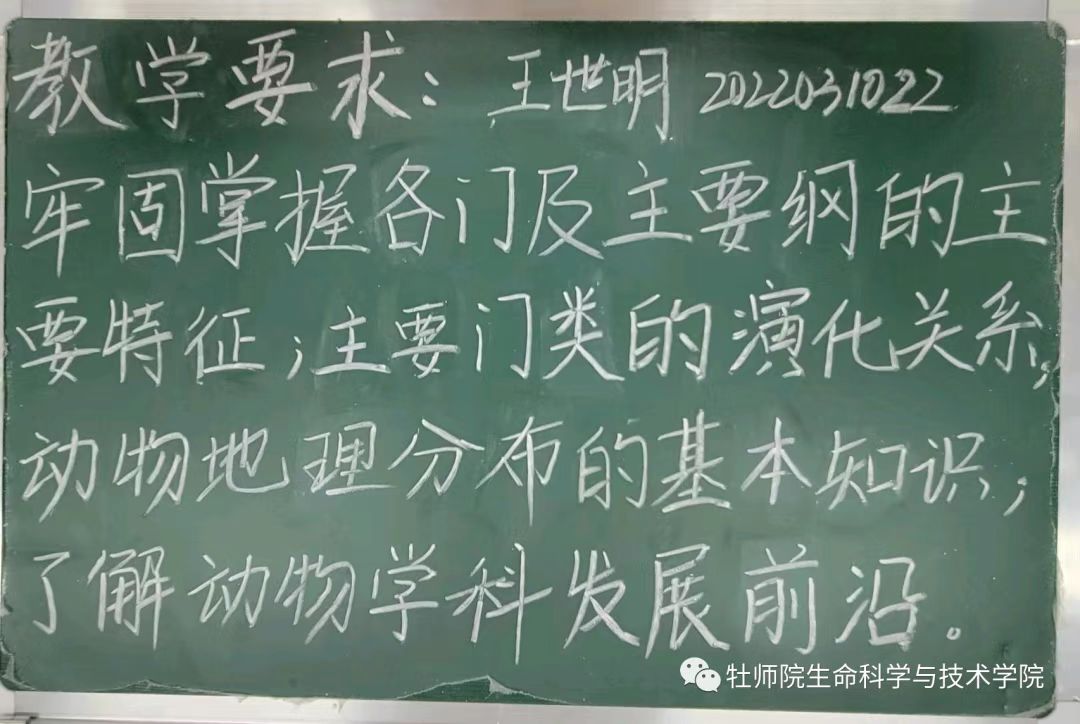 教学要求：王世明 2022031022
牢固掌握各门及主要纲的主
要特征；主要门类的演化关系，
动物地理分布的基本知识；
了解动物学科发展前沿。
牡师院生命科学与技术学院